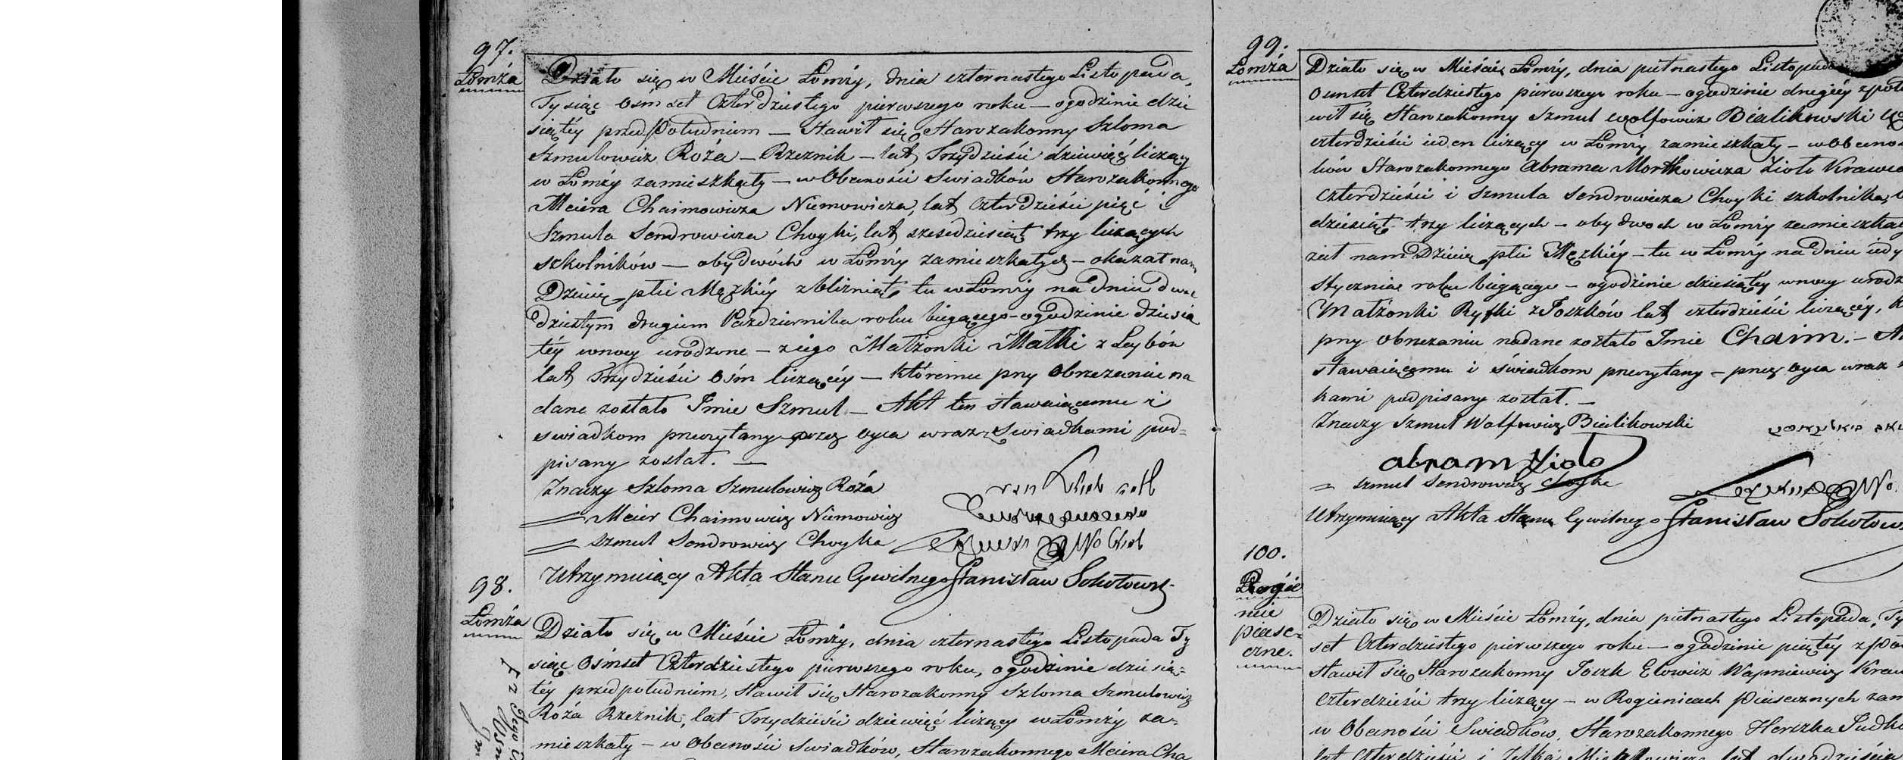 97.
Łomża
Działo się w Mieście Łomży, dnia czternastego Listopada,
Tysiąc Ośmset Czterdziestego pierwszego roku — o godzinie dzie
siątéy przed Południem — Stawił się Starozakonny Szloma
Szmulowicz Roża — Rzeznik — lat Trzydzieści dziewięć liczący
w Łomży zamieszkały — w Obecności Swiadków Starozakonnego
Meiera Chaimowicza Niemowicza, lat Czterdzieści pięć i
Szmula Sendrowicza Choyki, lat szesedziesiąt trzy liczących
szkolników — obydwóch w Łomży zamieszkałych — okazał nam
Dziecię płci Męzkiéy z bliźniąt, tu w Łomży na dniu dwu
dziestym drugim Października roku bieżącego — o godzinie dziesią
téy w nocy urodzone — z iego Małżonki Małki z Leybów
lat Trzydzieści Ośm liczącéy — któremu przy Obrzezaniu na
dane zostało Imie Szmul — Akt ten stawaiącemu i
swiadkom przeczytany przez oyca wraz z Swiadkami pod=
pisany został. —
Znaczy Szloma Szmulowicz Roża
— Meier Chaimowicz Niemowicz
— Szmul Sendrowicz Choyka
Utrzymuiący Akta Stanu Cywilnego Stanisław Sokołowski
98.
Łomża
Działo się w Mieście Łomży, dnia czternastego Listopada Ty
siąc Ośmset Czterdziestego pierwszego roku, o godzinie dziesią=
téy przed południem, Stawił się Starozakonny Szloma Szmulowicz
Roża Rzeznik, lat Trzydzieści dziewięć liczący w Łomży za=
mieszkały — w Obecności Swiadków, Starozakonnego Meiera Cha
99.
Łomża
Działo się w Mieście Łomży, dnia piętnastego Listopada
Osmset Czterdziestego pierwszego roku — o godzinie drugiéy z połu
wił się Starozakonny Szmul Wolfowicz Bialikowski
czterdzieści ieden liczący w Łomży zamieszkały — w Obecno
ków Starozakonnego Abrama Mortkowicza Zioło Krawca
Czterdzieści i Szmula Sendrowicza Choyki szkolnika,
dziesiąt trzy liczących — obydwóch w Łomży zamieszka
zał nam Dziecię płci Męzkiéy — tu w Łomży na dniu
Stycznia roku bieżącego — o godzinie dziesiątéy w nocy urodz
Małżonki Ryfki z Joszków lat czterdzieści liczącéy,
przy obrzezaniu nadane zostało Imie Chaim. —
stawaiącemu i świadkom przeczytany — przez oyca wraz
kami podpisany został. —
Znaczy Szmul Wolfowicz Bialikowski
Abram Zioło
= Szmul Sendrowicz Choyka
Utrzymuiący Akta Stanu Cywilnego Stanisław Sokołows
100.
Rogie
nie
piase=
czne.
Działo się w Mieście Łomży, dnia piętnastego Listopada, Ty
set Czterdziestego pierwszego roku — o godzinie piątéy z po
stawił się Starozakonny Joszk Elowicz Wapniewicz Kraw
czterdzieści trzy liczący — w Rogienicach Piasecznych zam
w Obecności Swiadków, Starozakonnego Herszka Judko
lat Czterdzieści i